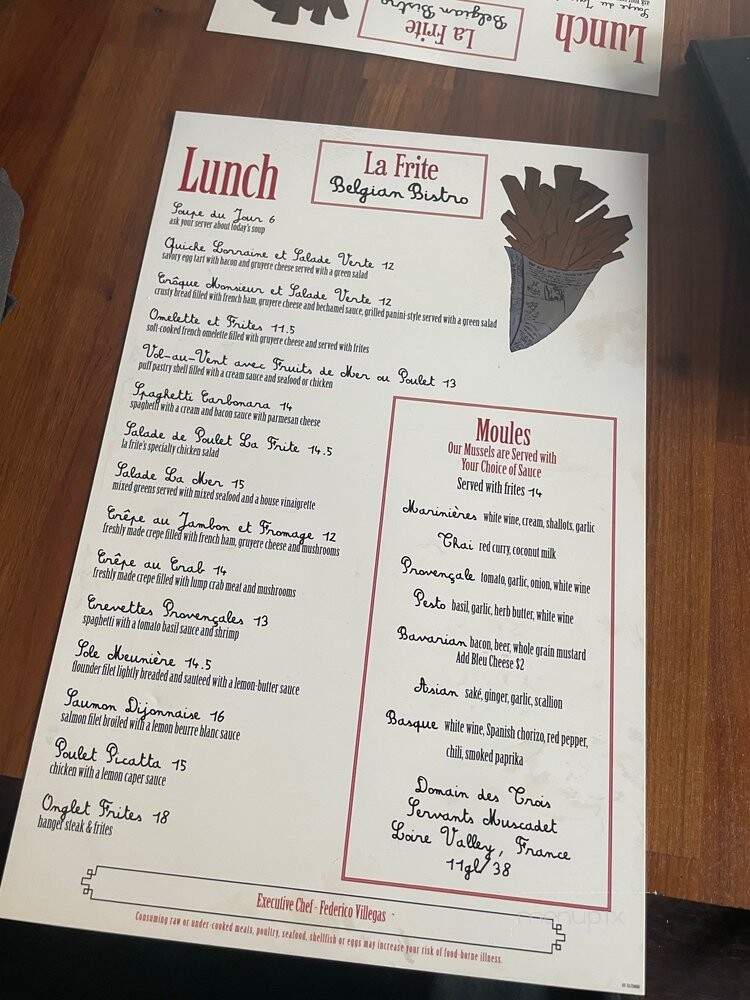 La Frite
Belgian Bistro
Lunch
Soupe du Jour
Lunch
La Frite
Belgian Bistro
Soupe du Jour 6
ask your server about today's soup
Quiche Lorraine et Salade Verte 12
savory egg tart with bacon and gruyere cheese served with a green salad
Crôque Monsieur et Salade Verte 12
crusty bread filled with french ham, gruyere cheese and bechamel sauce, grilled panini-style served with a green salad
Omelette et Frites 11.5
soft-cooked french omelette filled with gruyere cheese and served with frites
Vol-au-Vent avec Fruits de Mer ou Poulet 13
puff pastry shell filled with a cream sauce and seafood or chicken
Spaghetti Carbonara 14
spaghetti with a cream and bacon sauce with parmesan cheese
Salade de Poulet La Frite 14.5
la frite's specialty chicken salad
Salade La Mer 15
mixed greens served with mixed seafood and a house vinaigrette
Crêpe au Jambon et Fromage 12
freshly made crepe filled with french ham, gruyere cheese and mushrooms
Crêpe au Crab 14
freshly made crepe filled with lump crab meat and mushrooms
Crevettes Provençales 13
spaghetti with a tomato basil sauce and shrimp
Sole Meunière 14.5
flounder filet lightly breaded and sauteed with a lemon-butter sauce
Saumon Dijonnaise 16
salmon filet broiled with a lemon beurre blanc sauce
Poulet Picatta 15
chicken with a lemon caper sauce
Onglet Frites 18
hanger steak & frites
Moules
Our Mussels are Served with
Your Choice of Sauce
Served with frites 14
Marinières white wine, cream, shallots, garlic
Thai red curry, coconut milk
Provençale tomato, garlic, onion, white wine
Pesto basil, garlic, herb butter, white wine
Bavarian bacon, beer, whole grain mustard
Add Bleu Cheese $2
Asian saké, ginger, garlic, scallion
Basque white wine, Spanish chorizo, red pepper,
chili, smoked paprika
Domain des Trois
Servants Muscadet
Loire Valley, France
11gl/38
Executive Chef - Federico Villegas
Consuming raw or under-cooked meats, poultry, seafood, shellfish or eggs may increase your risk of food-borne illness.
menupix